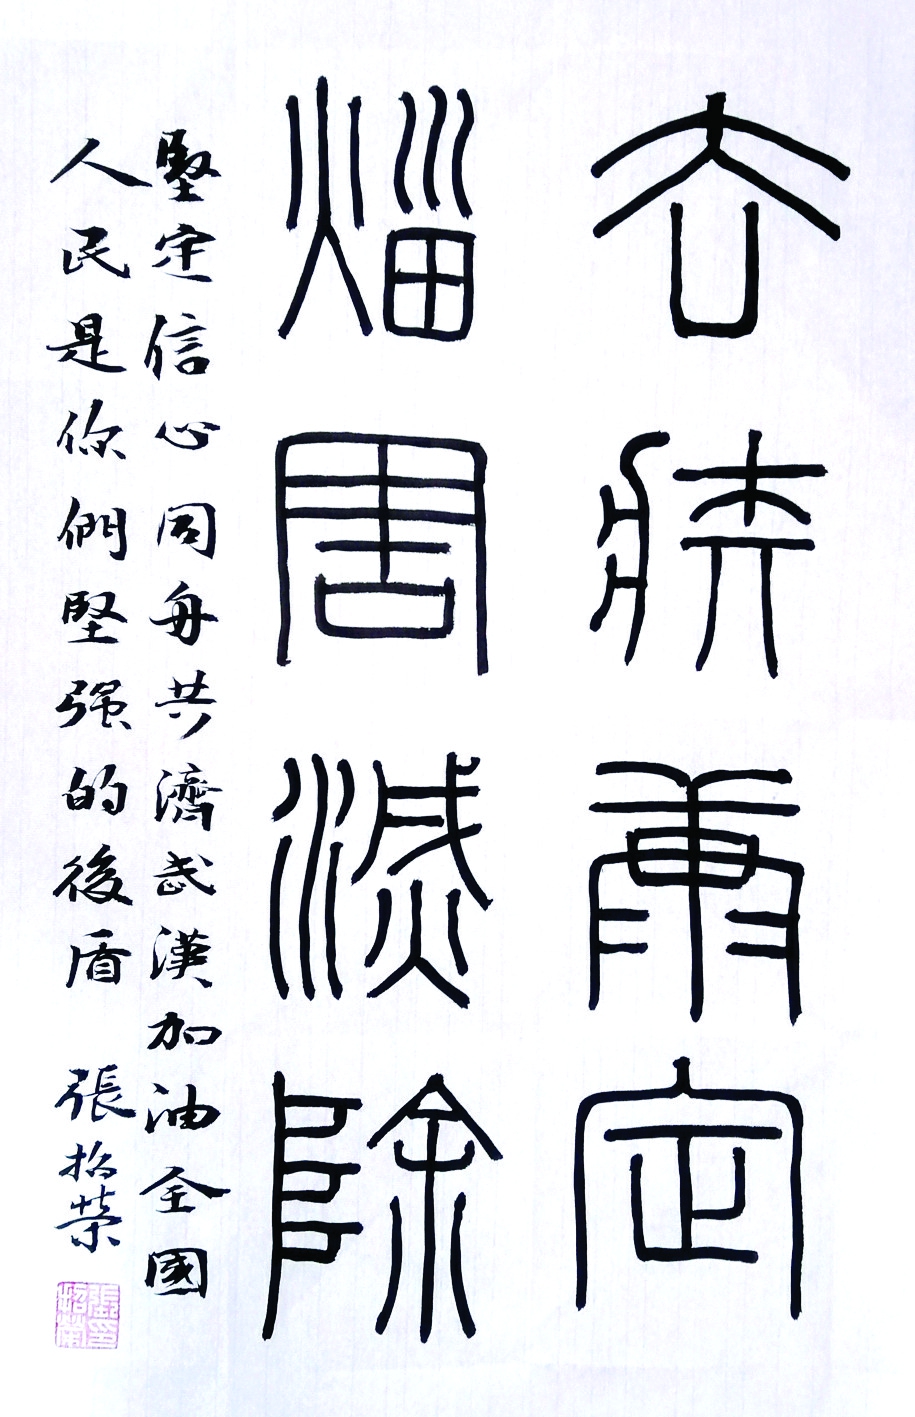 去定
災害滅除
堅定信心同舟共濟武漢加油全國
人民是你們堅强的後盾 張招榮
張印招榮